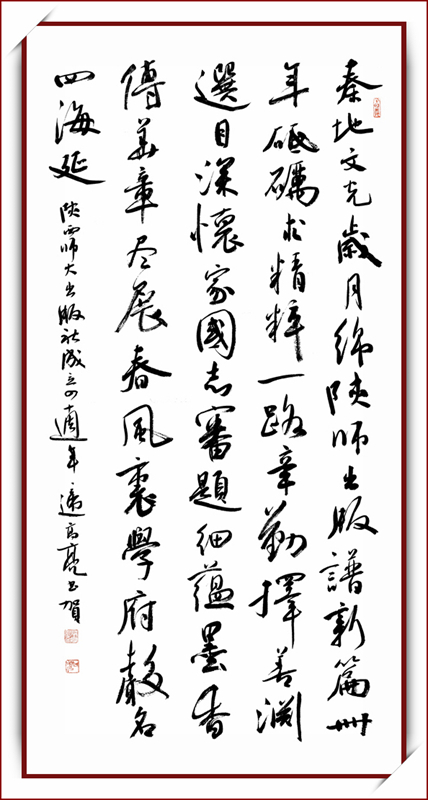 秦地文光歲月綿陝師出版譜新篇卌
年砥礪求精粹一路辛勤擇善淵
選目深懷家國志審題細蘊墨香
傳華章尽展春風裏學府聲名
四海延
陝西師大出版社成立週年高亮书賀